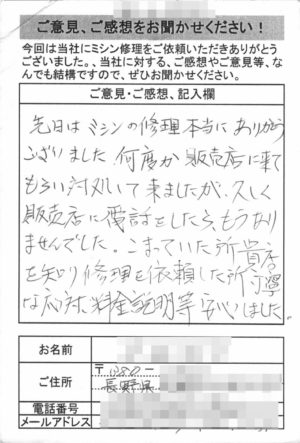 ご意見、ご感想をお聞かせください！
今回は当社にミシン修理をご依頼いただきありがとう
ございました。、当社に対する、ご感想やご意見等、な
んでも結構ですので、ぜひお聞かせください。
ご意見・ご感想、記入欄
先日はミシンの修理本当にありがとう
ございました 何度か販売店に来て
もらい対処して来ましたが、久しく
販売店に電話をしたら、もうあり
ませんでした。こまっていた所貴店
を知り修理を依頼した所丁寧
な応対、料金説明等安心しました。
お名前
ご住所
〒
長野県
電話番号
メールアドレス